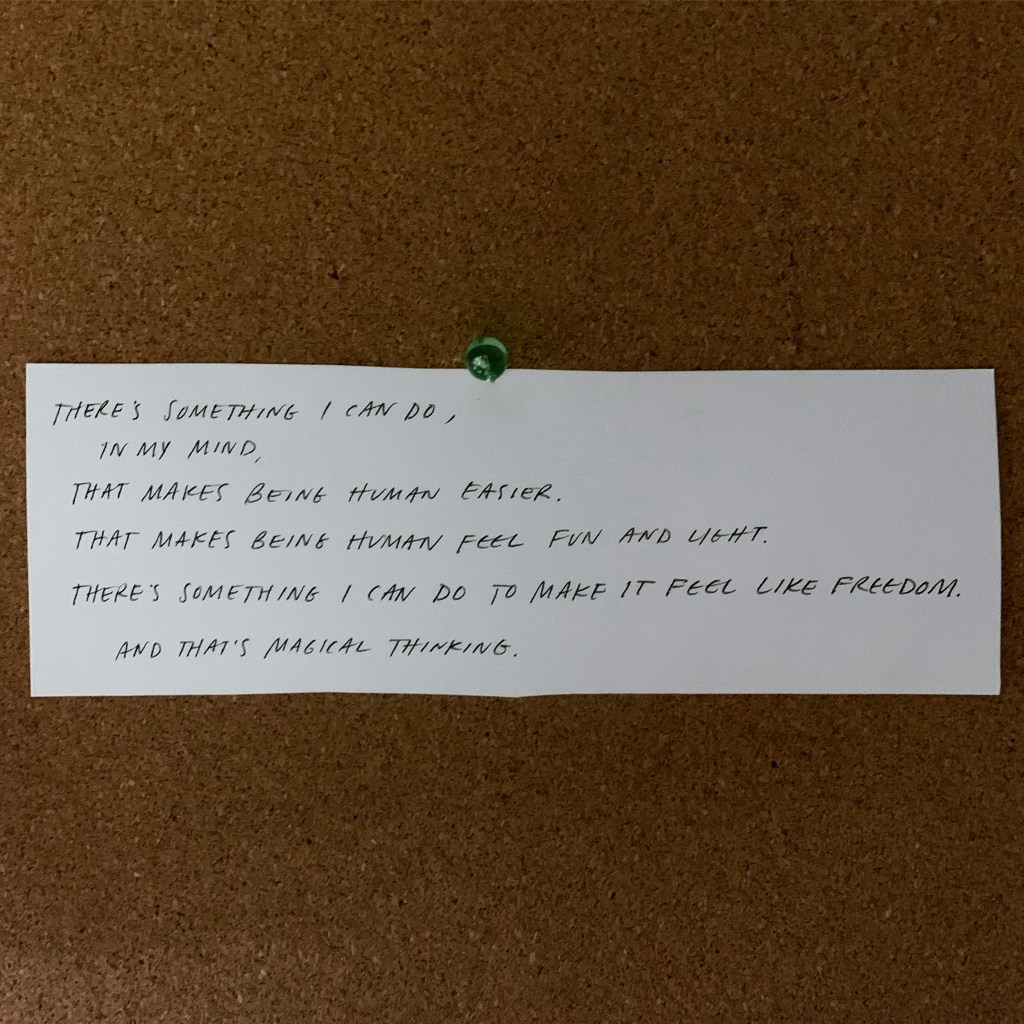 THERE'S SOMETHING I CAN DO,
IN MY MIND,
THAT MAKES BEING HUMAN EASIER.
THAT MAKES BEING HUMAN FEEL FUN AND LIGHT.
THERE'S SOMETHING I CAN DO TO MAKE IT FEEL LIKE FREEDOM.
AND THAT'S MAGICAL THINKING.